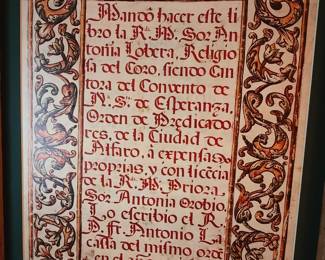 Mandò hacer este li
bro la Rᵃ. M. Sor An
tonia Lobera, Religio
sa del Coro, siendo Can
tora del Convento de
N. S. de Esperanza,
Orden de Predicado
res, de la Ciudad de
Alfaro, a expensas
proprias, y con licẽcia
de la Rᵃ. M. Priora
Sor Antonia Orobio,
Lo escribio el R.
P. Fr. Antonio La
casa del mismo ordẽ
en el